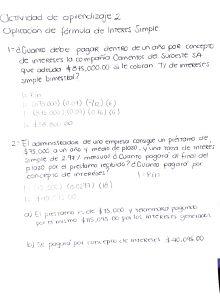 Actividad de aprendizaje 2
Aplicación de fórmula de Interés Simple
1- ¿Cuánto debe pagar dentro de un año por concepto
de intereses la compañía Cementos del Suroeste SA
que adeuda $815,000.00 si le cobran 7% de intereses
simple bimestral?
2- El administrador de una empresa consigue un préstamo de
$75,000 a un año y medio de plazo, y una tasa de interés
simple de 2.97% mensual ¿Cuánto pagará al final del
plazo por el préstamo recibido? ¿Cuánto pagará por
concepto de intereses?
a) El préstamo es de $75,000 y terminará pagando
por el mismo $115,095.00 por los intereses generados
b) Se pagará por concepto de intereses $40,095.00